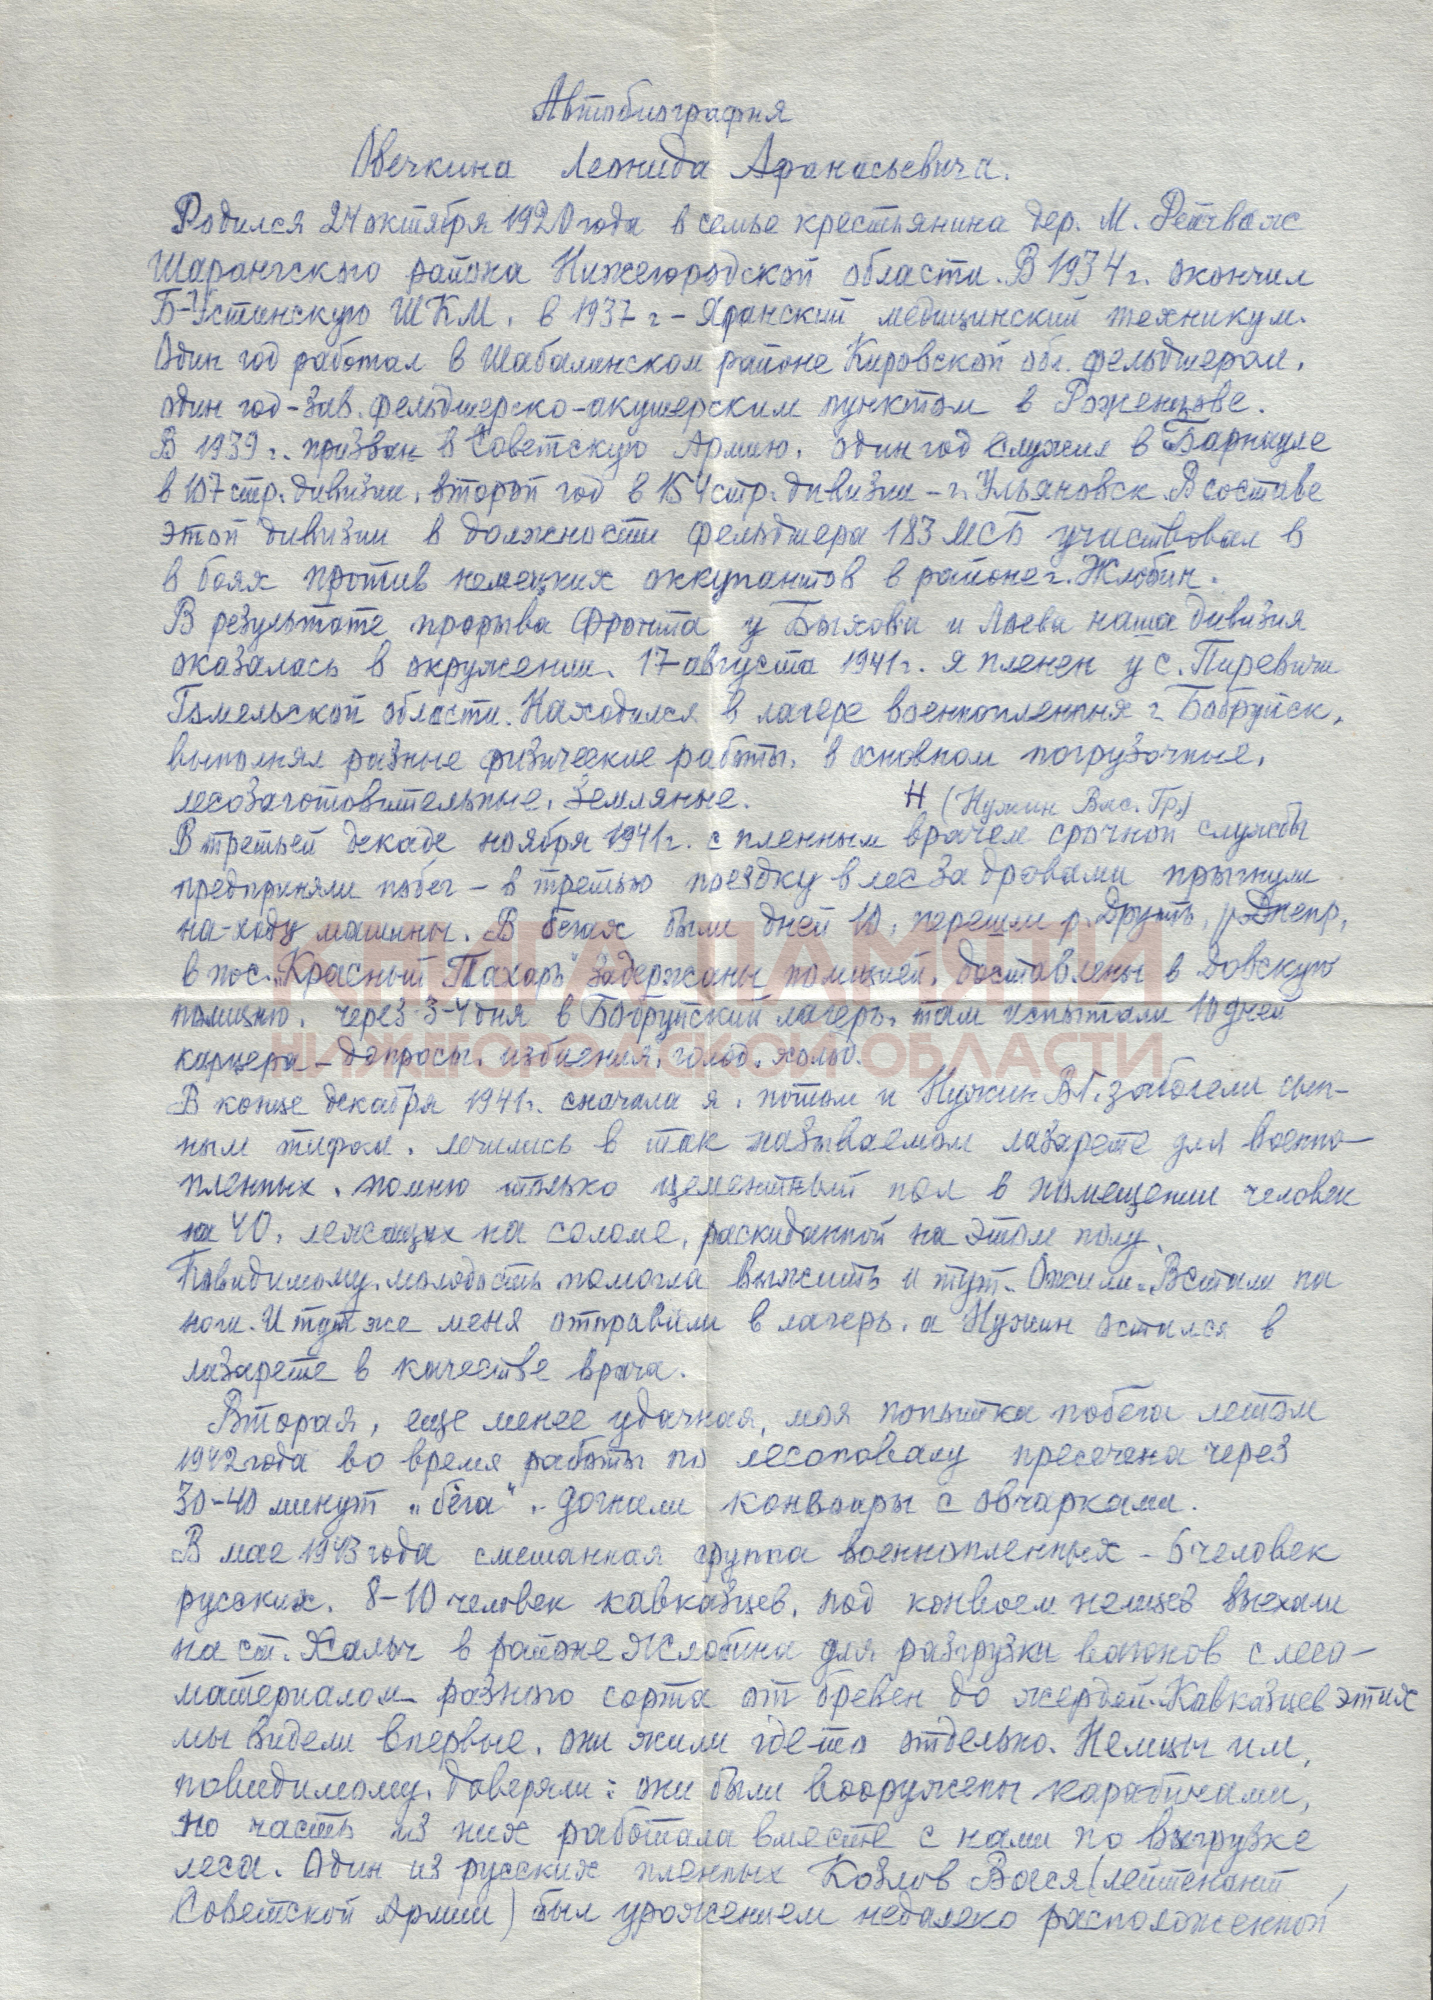 Автобиография
Овечкина Леонида Афанасьевича.
Родился 24 октября 1920 года в семье крестьянина дер. М. Рейчваж
Шарангского района Нижегородской области. В 1934 г. окончил
Б-Устинскую ШКМ, в 1937 г - Яранский медицинский техникум.
Один год работал в Шабалинском районе Кировской обл. фельдшером,
один год - зав. фельдшерско-акушерским пунктом в Роженцове.
В 1939 г. призван в Советскую Армию, один год служил в Барнауле
в 107 стр. дивизии, второй год в 154 стр. дивизии - г. Ульяновск. В составе
этой дивизии в должности фельдшера 183 МСБ участвовал в
в боях против немецких оккупантов в районе г. Жлобин.
В результате прорыва фронта у Быхова и Лоева наша дивизия
оказалась в окружении. 17 августа 1941 г. я пленен у с. Пиревичи
Гомельской области. Находился в лагере военнопленных г. Бобруйск,
выполнял разные физические работы, в основном погрузочные,
лесозаготовительные, земляные.
Н (Нужин Вяс. Гр.)
В третьей декаде ноября 1941 г. с пленным врачем срочной службы
предприняли побег - в третью поездку в лес за дровами прыгнули
на-ходу машины. В бегах были дней 10, перешли р. Друть, р. Днепр,
в пос. „Красный Пахарь" задержаны полицией, доставлены в Довскую
полицию, через 3-4 дня в Бобруйский лагерь, там испытали 10 дней
карцера - допросы, избиения, голод, холод.
КНИГА ПАМЯТИ
НИЖЕГОРОДСКОЙ ОБЛАСТИ
В конце декабря 1941 г. сначала я, потом и Нужин В.Г. заболели сып-
ным тифом, лечились в так называемом лазарете для военно-
пленных, помню только цементный пол в помещении человек
на 40, лежащих на соломе, раскиданной на этом полу.
Повидимому, молодость помогла выжить и тут. Ожили. Встали на
ноги. И тут же меня отправили в лагерь, а Нужин остался в
лазарете в качестве врача.
Вторая, еще менее удачная, моя попытка побега летом
1942 года во время работы по лесоповалу пресечена через
30-40 минут „бега", догнали конвоиры с овчарками.
В мае 1943 года смешанная группа военнопленных - 6 человек
русских, 8-10 человек кавказцев, под конвоем немцев выехали
на ст. Хальч в районе Жлобина для разгрузки вагонов с лесо-
материалом разного сорта от бревен до жердей. Кавказцев этих
мы видели впервые, они жили где-то отдельно. Немцы им,
повидимому, доверяли: они были вооружены карабинами,
но часть из них работала вместе с нами по выгрузке
леса. Один из русских пленных Козлов Вася (лейтенант
Советской Армии) был уроженцем недалеко расположенной